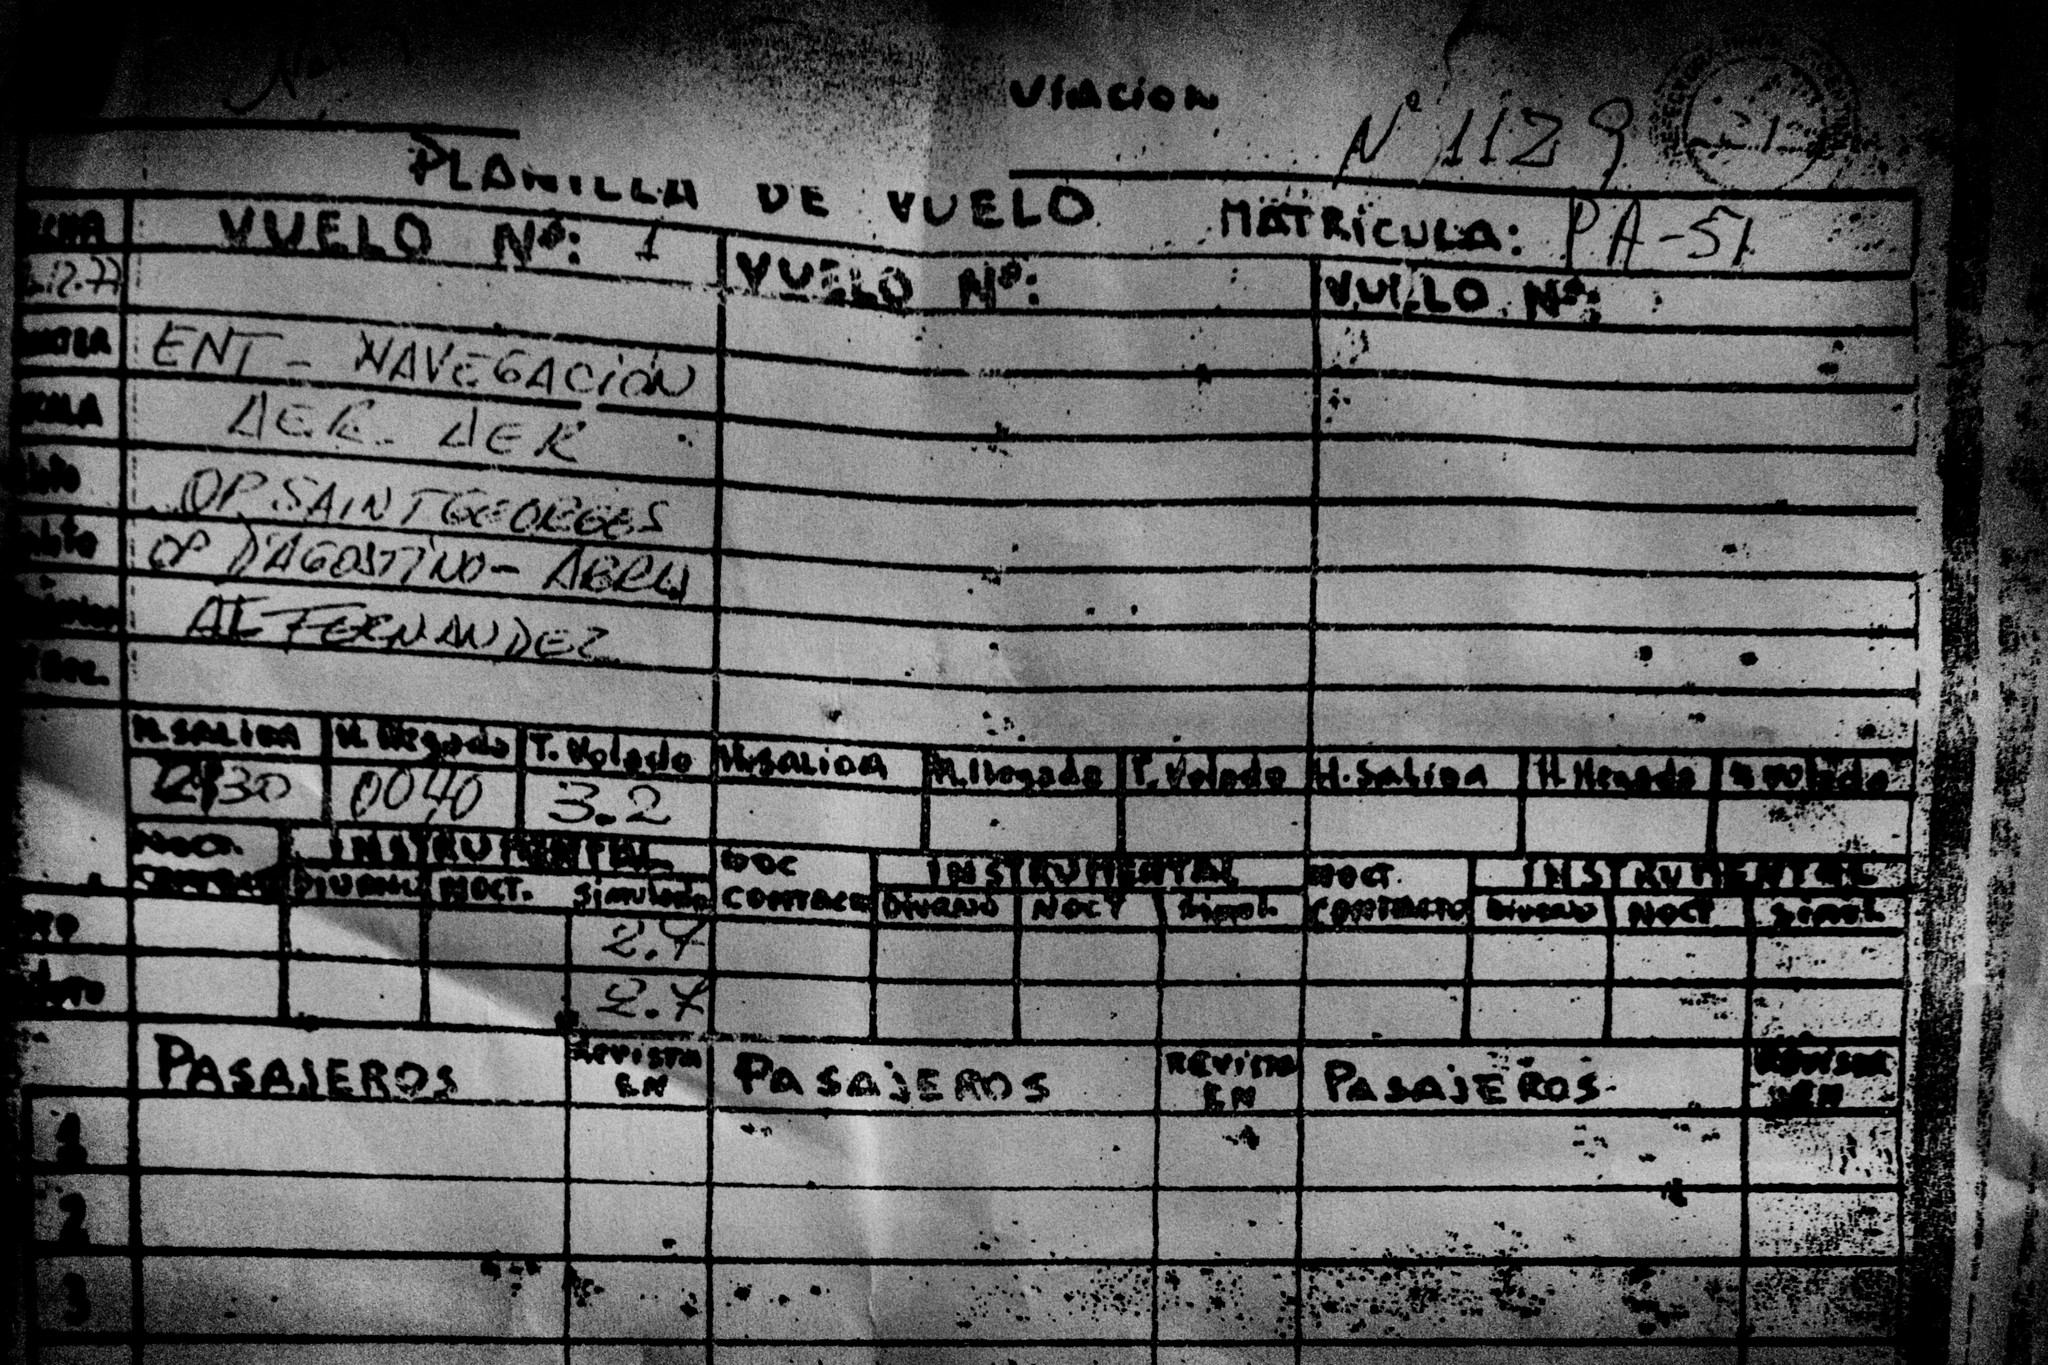 VIACION
Nº 1129
PLANILLA DE VUELO MATRICULA: PA-51
VUELO Nº: 1 VUELO Nº: VUELO Nº:
12.77
ENT - NAVEGACIÓN
AER. AER
OP. SAINT GEORGES
OP D'AGOSTINO -
AE FERNANDEZ
H. SALIDA H. llegada T. Volado H. SALIDA H. llegada T. Volado H. Salida H. llegada
2130 0040 3.2
NOCT. INSTRUMENTAL NOC INSTRUMENTAL NOCT. INSTRUMENTAL
CONTACTO DIURNO NOCT. Simulado CONTACTO DIURNO NOCT Simul. CONTACTO DIURNO NOCT Simul.
2.7
2.7
PASAJEROS REVISTA EN PASAJEROS REVISTA EN PASAJEROS REVISTA EN
1
2
3